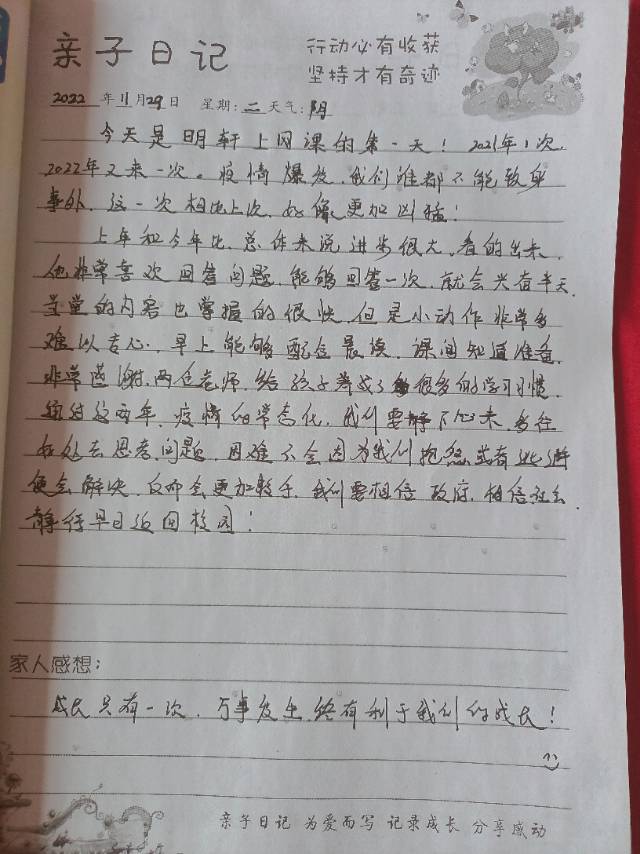 亲子日记
行动必有收获
坚持才有奇迹
2022年11月29日 星期:二 天气:阴
今天是明轩上网课的第一天！2021年1次，
2022年又来一次。疫情爆发，我们谁都不能致身
事外，这一次相比上次，好像更加凶猛！
上年和今年比，总体来说进步很大，看的出来，
他非常喜欢回答问题，能够回答一次，就会兴奋半天，
课堂的内容也掌握的很快，但是小动作非常多
难以专心，早上能够配合晨读，课间知道准备，
非常感谢两位老师，给孩子养成了很多的学习习惯，
面对这两年，疫情的常态化，我们要静下心来，多往
好处去思考问题，困难不会因为我们抱怨或者逃避
便会解决，反而会更加棘手，我们要相信政府，相信社会，
静待早日返回校园！
家人感想：
成长只有一次，万事发生终有利于我们的成长！
亲子日记 为爱而写 记录成长 分享感动